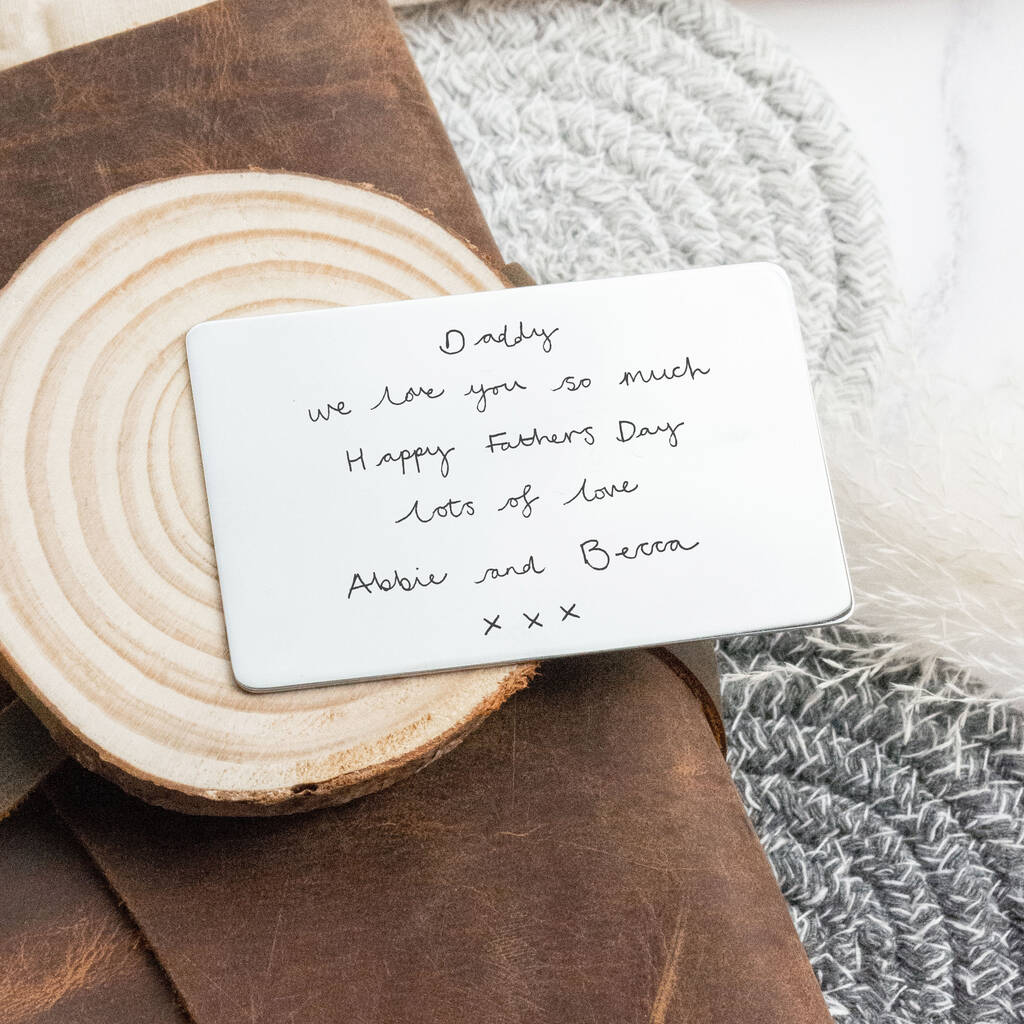 Daddy
we love you so much
Happy Fathers Day
lots of love
Abbie and Becca
x x x